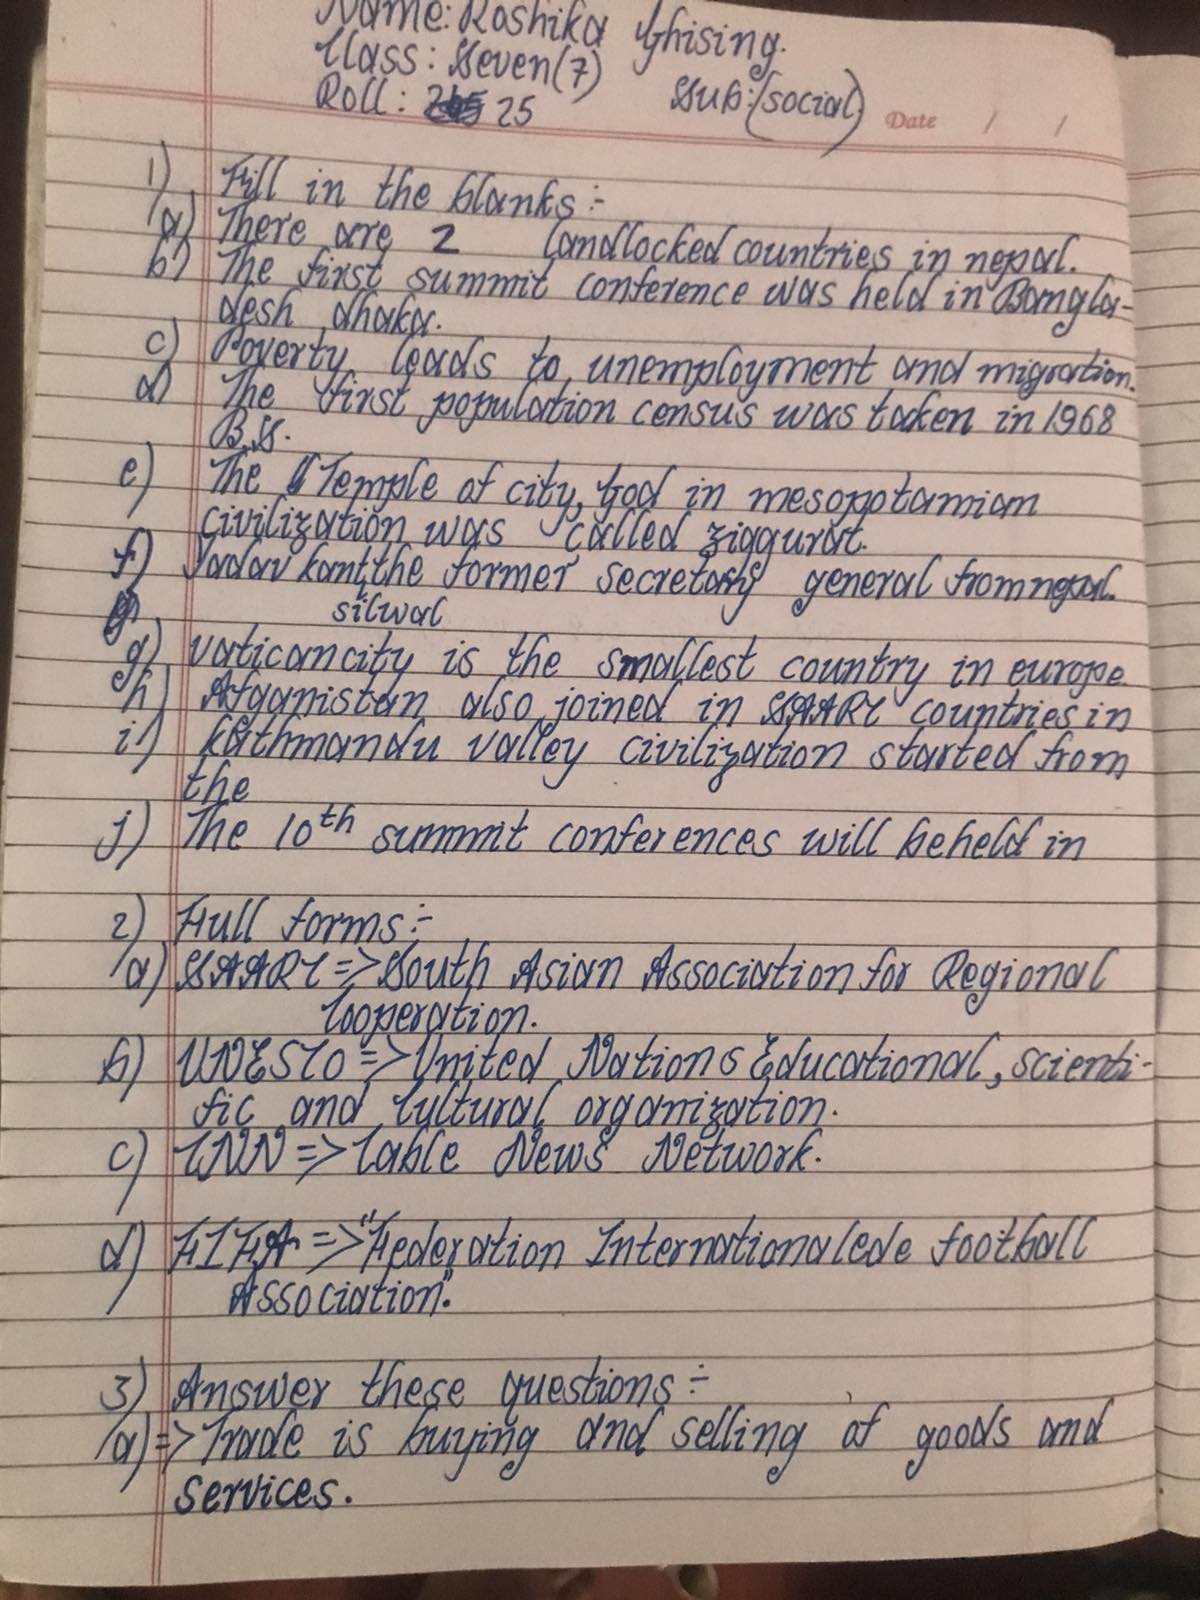 Name: Roshika Ghising.
Class: Seven(7)
Roll: 25 Sub:(social)
Date / /
1) Fill in the blanks:-
a) There are 2 landlocked countries in nepal.
b) The first summit conference was held in Bangla-
desh dhaka.
c) Poverty leads to unemployment and migration.
d) The first population census was taken in 1968
B.S.
e) The Temple of city, God in mesopotamian
civilization was called ziggurat.
f) Yadav kant, the former secretary general from nepal.
silwal
g) vatican city is the smallest country in europe
h) Afganistan also joined in SAARC countries in
i) kathmandu valley civilization started from
the
j) The 10th summit conferences will be held in
2) Full forms:-
a) SAARC => South Asian Association for Regional
Cooperation.
b) UNESCO => United Nations Educational, scienti-
fic and Cultural organization.
c) CNN => Cable News Network.
d) FIFA => "Federation Internationalede football
Association."
3) Answer these questions:-
a) => Trade is buying and selling of goods and
services.